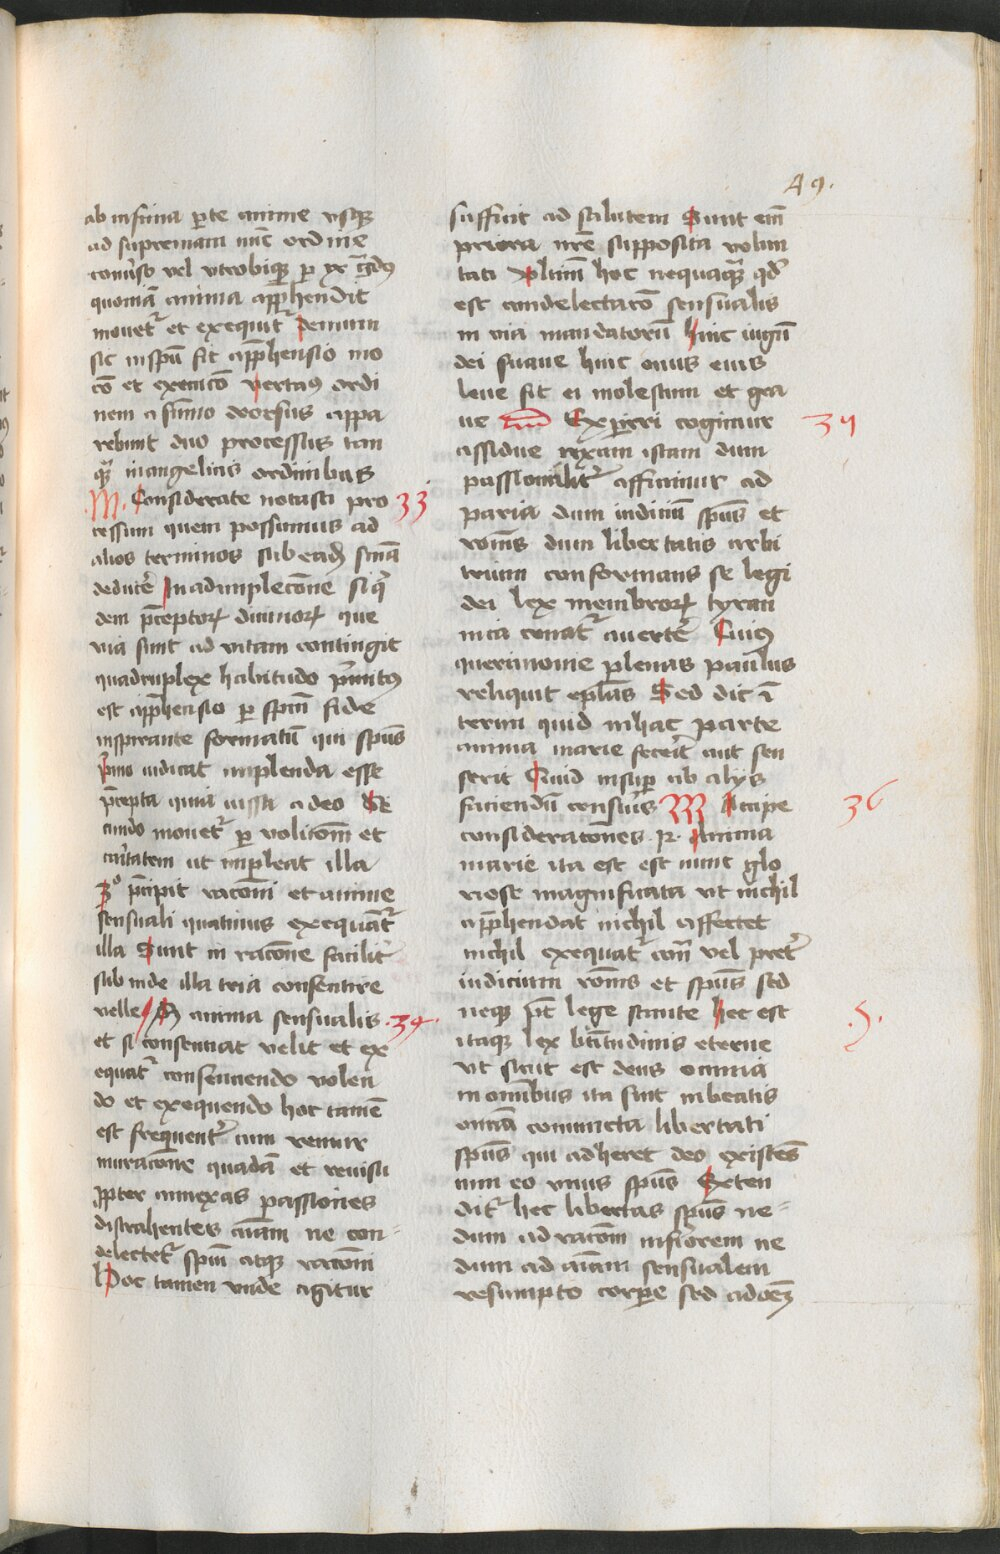 49.
ab infima p̄te anime vsqꝫ
ad supremam nūc ordine
conu̾so vel vtrobiqꝫ
quoniā anima app̄hendit
mouet᷑ et exequit᷑ Demum
sic in spū fit app̄hensio mo
cō et execucō vertam᷒ ordi
nem a sūmo deorsus appa
rebunt duo processus tan
qꝫ in angelicis ordinibus
M. Considerate notasti pro 33
cessum quem possumus ad
alios terminos sub eadē smā
deducēr In adimplecōne siqᷓ
dem p̄ceptoꝝ diuinoꝝ que
via sunt ad vitam contingit
quadruplex habitudo p̓mitus
est app̄hensio per spm̄ fide
inspirante formatū qui spūs
p̓mo iudicat implenda esse
p̄cepta quia iussa a deo Se
cundo mouet᷑ per volicōm et
ut impleat illa
3º p̄cipit racōni et anime
sensuali quatinus exequant᷑
illa Sunt in racōne facilit᷑
sub inde illa tria consentire
velle anima sensualis .34.
et si consenciat velit et ex
equat᷑ consenciendo volen
do et exequendo hoc tamē
est frequent᷑ cum
muracōne quadā et
ꝓpter annexas passiones
distrahentes aīam ne con=
delectet᷑ spūi atqꝫ racōni
Hoc tamen vnde agitur
sufficit ad salutem Sunt eīn
priora nr̄e supposita volun
tati vltim̄ hoc nequaqᷓ qd̓
est condelectacō sensualis
in via mandatorū hinc iugū
dei suaue hinc onus eius
leue fit ei molestum et gra
ue Experiri cogimur 35
assidue rixam istam dum
passionalit᷑ afficimur ad
paria dum iudiciū spūs et
rōnis dum libertatis arbi
trium conformans se legi
dei lex membroꝝ tyran
nica conat᷑ auertēr Cui᷒
querimonie plenas paulus
reliquit eplās Sed dic ī
terim quid in hac parte
anima marie fecerit aut sen
serit Quid insuper ab alijs
faciendū M Accipe 36
consideracōnes Anima
marie ita est est nunc glo
riose magnificata vt nichil
app̄hendat nichil affectet
nichil exequat᷑ con̄ vel pret᷑
iudicium rōnis et spūs sed
neqꝫ p̄t lege stante hec est .5.
itaqꝫ lex btītudinis eterne
vt sicut est deus omnia
in omnibus ita sint in beatis
omīa coniuncta libertati
spūs qui adheret deo existēs
cum eo vnus spūs Exten
dit᷑ hec libertas spūs ne=
dum ad racōm inferiorem ne
dum ad aīam sensualem
resumpto corpore sed ad oēꝫ